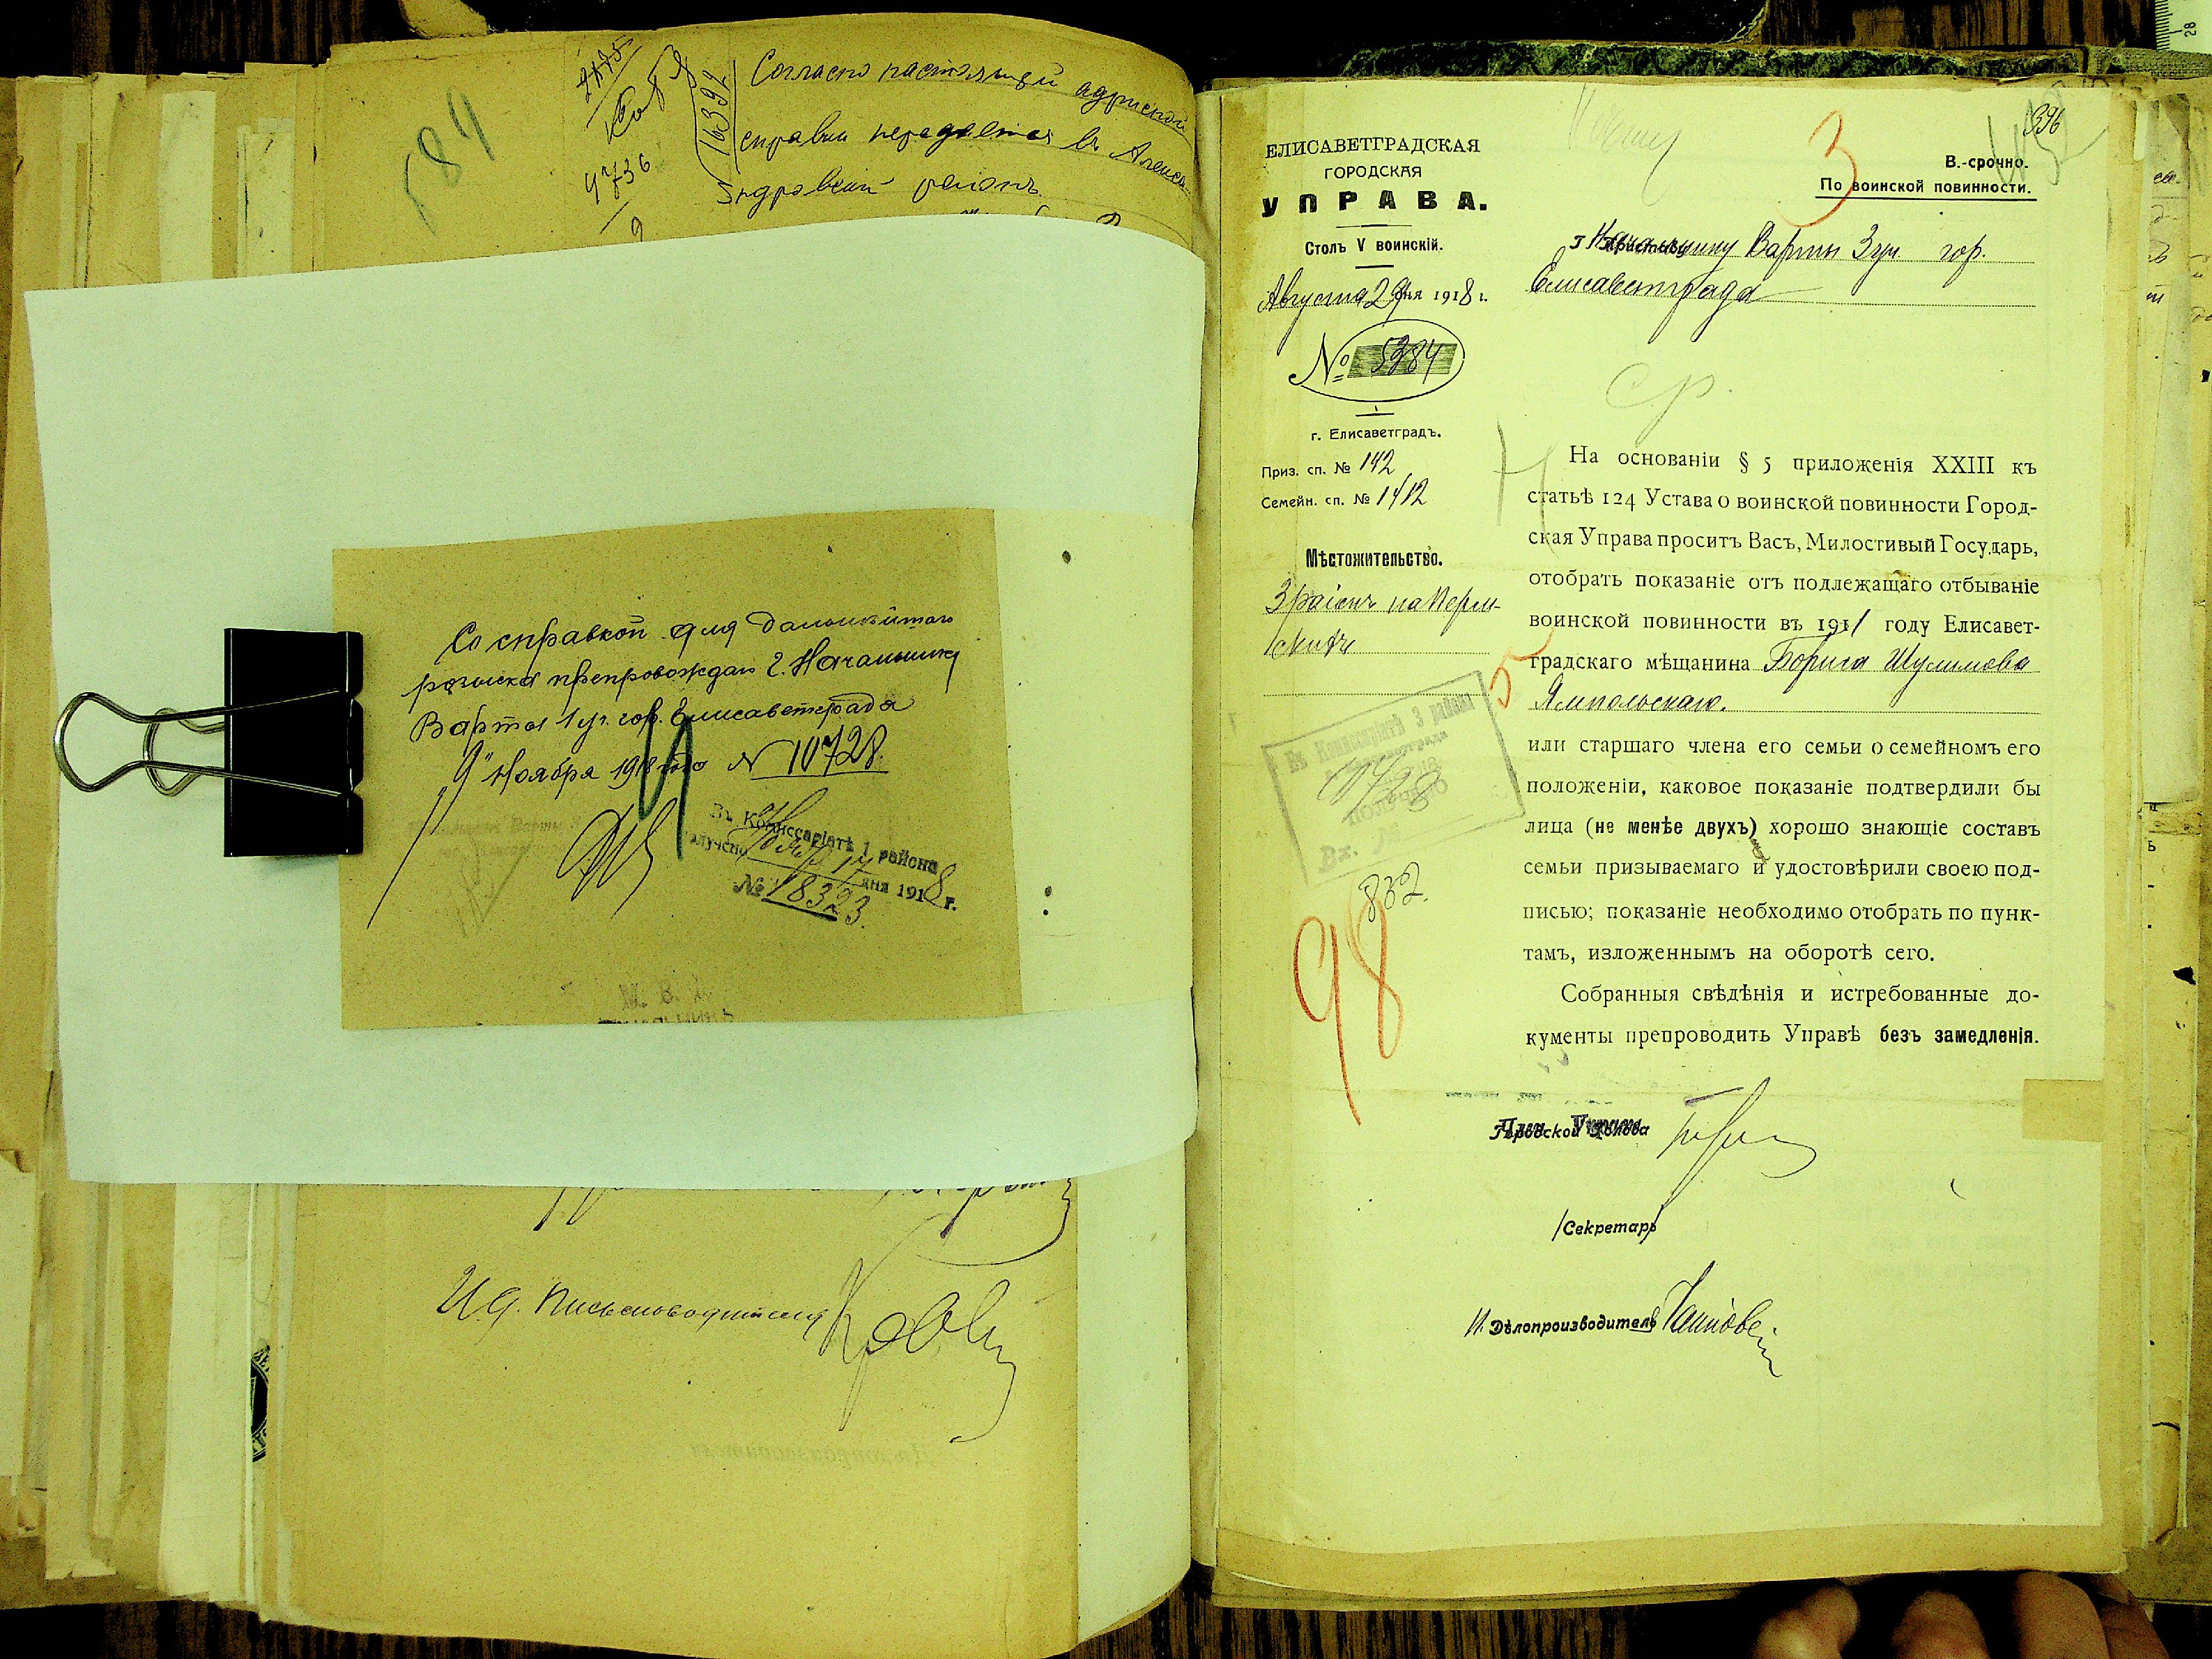 584
2175
16392
Согласно настоящей адресной
справки передается въ Алекса-
ндровскій районъ
4736
Со справкой для дальнѣйшаго
розыска препровождаю Г. Начальнику
Варты 1 уч. гор. Елисаветграда
"9" Ноября 1918 года № 10728.
Въ Комиссаріатѣ 1 района
Получено Ноября 14 дня 1918 г.
№ 18323.
М. В. Д.
И. д. Письмоводителя
396
ЕЛИСАВЕТГРАДСКАЯ
ГОРОДСКАЯ
УПРАВА.
Столъ V воинскій.
Августа 29 дня 1918 г.
№ 5384
г. Елисаветградъ.
Приз. сп. № 142
Семейн. сп. № 1412
Мѣстожительство.
3 раіонъ на Перм-
скихъ
Въ Комиссаріатѣ 3 района
г. Елисаветграда
10728
получено
Вх. №
832.
98
3
В.-срочно.
По воинской повинности.
Г. Начальнику Варты 3 уч. гор.
Елисаветграда
ср.
На основаніи § 5 приложенія XXIII къ
статьѣ 124 Устава о воинской повинности Город-
ская Управа проситъ Васъ, Милостивый Государь,
отобрать показаніе отъ подлежащаго отбыванію
воинской повинности въ 1911 году Елисавет-
градскаго мѣщанина Бориса Шулимова
Ямпольскаго.
или старшаго члена его семьи о семейномъ его
положеніи, каковое показаніе подтвердили бы
лица (не менѣе двухъ) хорошо знающіе составъ
семьи призываемаго и удостовѣрили своею под-
писью; показаніе необходимо отобрать по пунк-
тамъ, изложеннымъ на оборотѣ сего.
Собранныя свѣдѣнія и истребованные до-
кументы препроводить Управѣ безъ замедленія.
Городской Голова
Член Управы
/Секретарь/
И. Дѣлопроизводителя
28